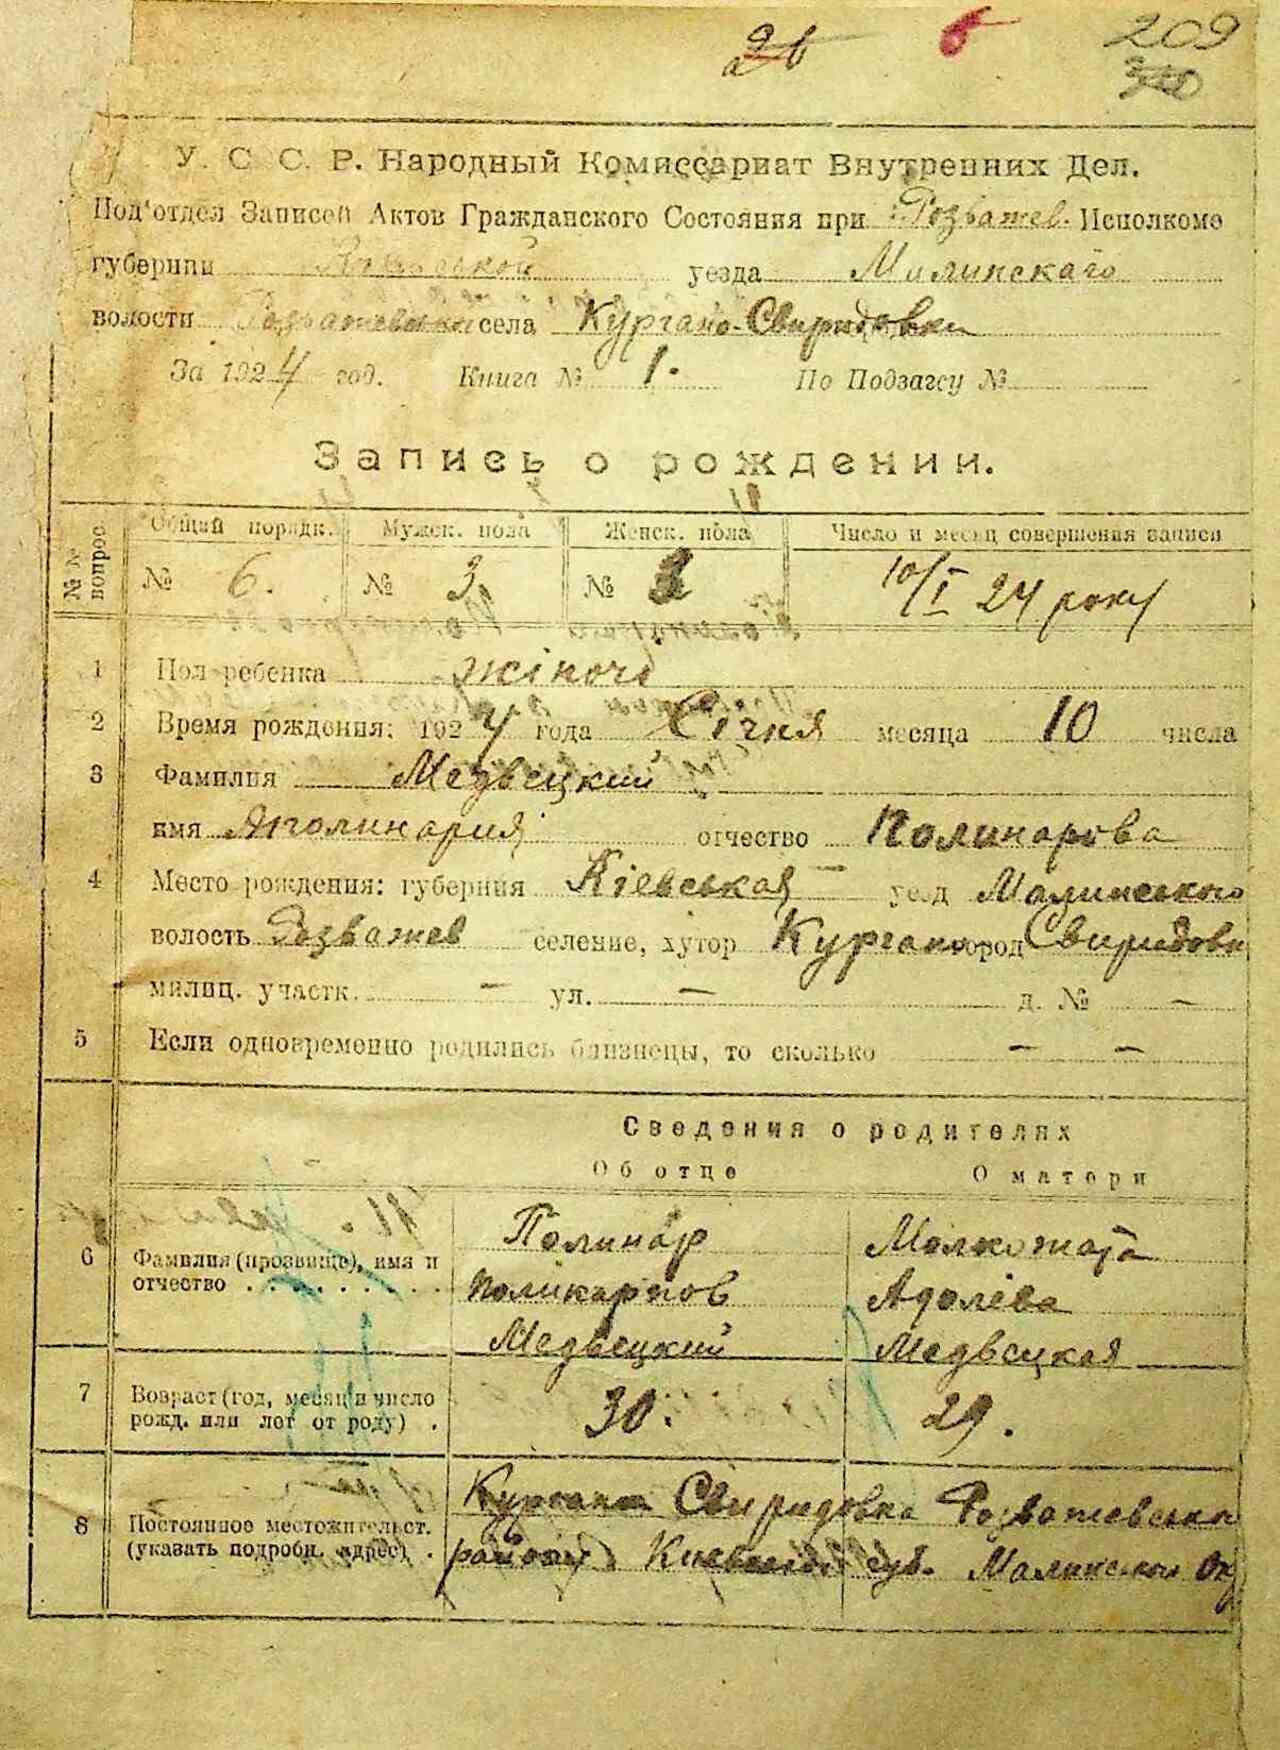 209
У. С. С. Р. Народный Комиссариат Внутренних Дел.
Под'отдел Записей Актов Гражданского Состояния при Розважев. Исполкоме
губернии Киевской уезда Малинскаго
волости села Кургано-Свиридовки
За 1924 год. Книга № 1. По Подзагсу №
Запись о рождении.
№№ вопрос
Общий порядк. Мужск. пола Женск. пола Число и месяц совершения записи
№ 6. № 3 № 3 10/I 24 року
1 Пол ребенка жіночі
2 Время рождения: 1924 года Січня месяца 10 числа
3 Фамилия Медвецкий
имя Аполинария отчество Полинарова
4 Место рождения: губерния Кіевськая уезд Малинського
волость Розважев селение, хутор Кургано город Свиридовк
милиц. участк. – ул. – д. № –
5 Если одновременно родились близнецы, то сколько – –
Сведения о родителях
Об отце О матери
6 Фамилия (прозвище), имя и отчество
Полинар
Поликарпов
Медвецкий
Адолева
Медвецкая
7 Возраст (год, месяц и число рожд. или лет от роду) . 30. 29.
8 Постоянное местожительст. (указать подробн. адрес) .
Кургана Свиридовка Розважевська
району Киевской губ. Малинской Ок